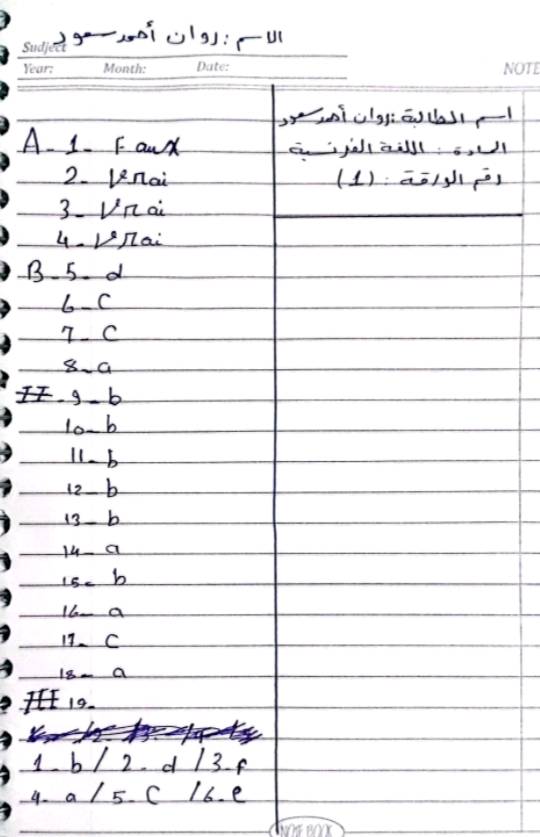 الاسم : روان أحمد سعود
Sudject
Year: Month: Date:
NOTE
اسم الطالبة : روان أحمد سعود
المادة : اللغة الفرنسية
رقم الورقة : (1)
A - 1 - Faux
2 - Vrai
3 - Vrai
4 - Vrai
B - 5 - d
6 - C
7 - C
8 - a
II - 9 - b
10 - b
11 - b
12 - b
13 - b
14 - a
15 - b
16 - a
17 - C
18 - a
III 19 -
1 - b / 2 - d / 3 - f
4 - a / 5 - C / 6 - e
NOTE BOOK